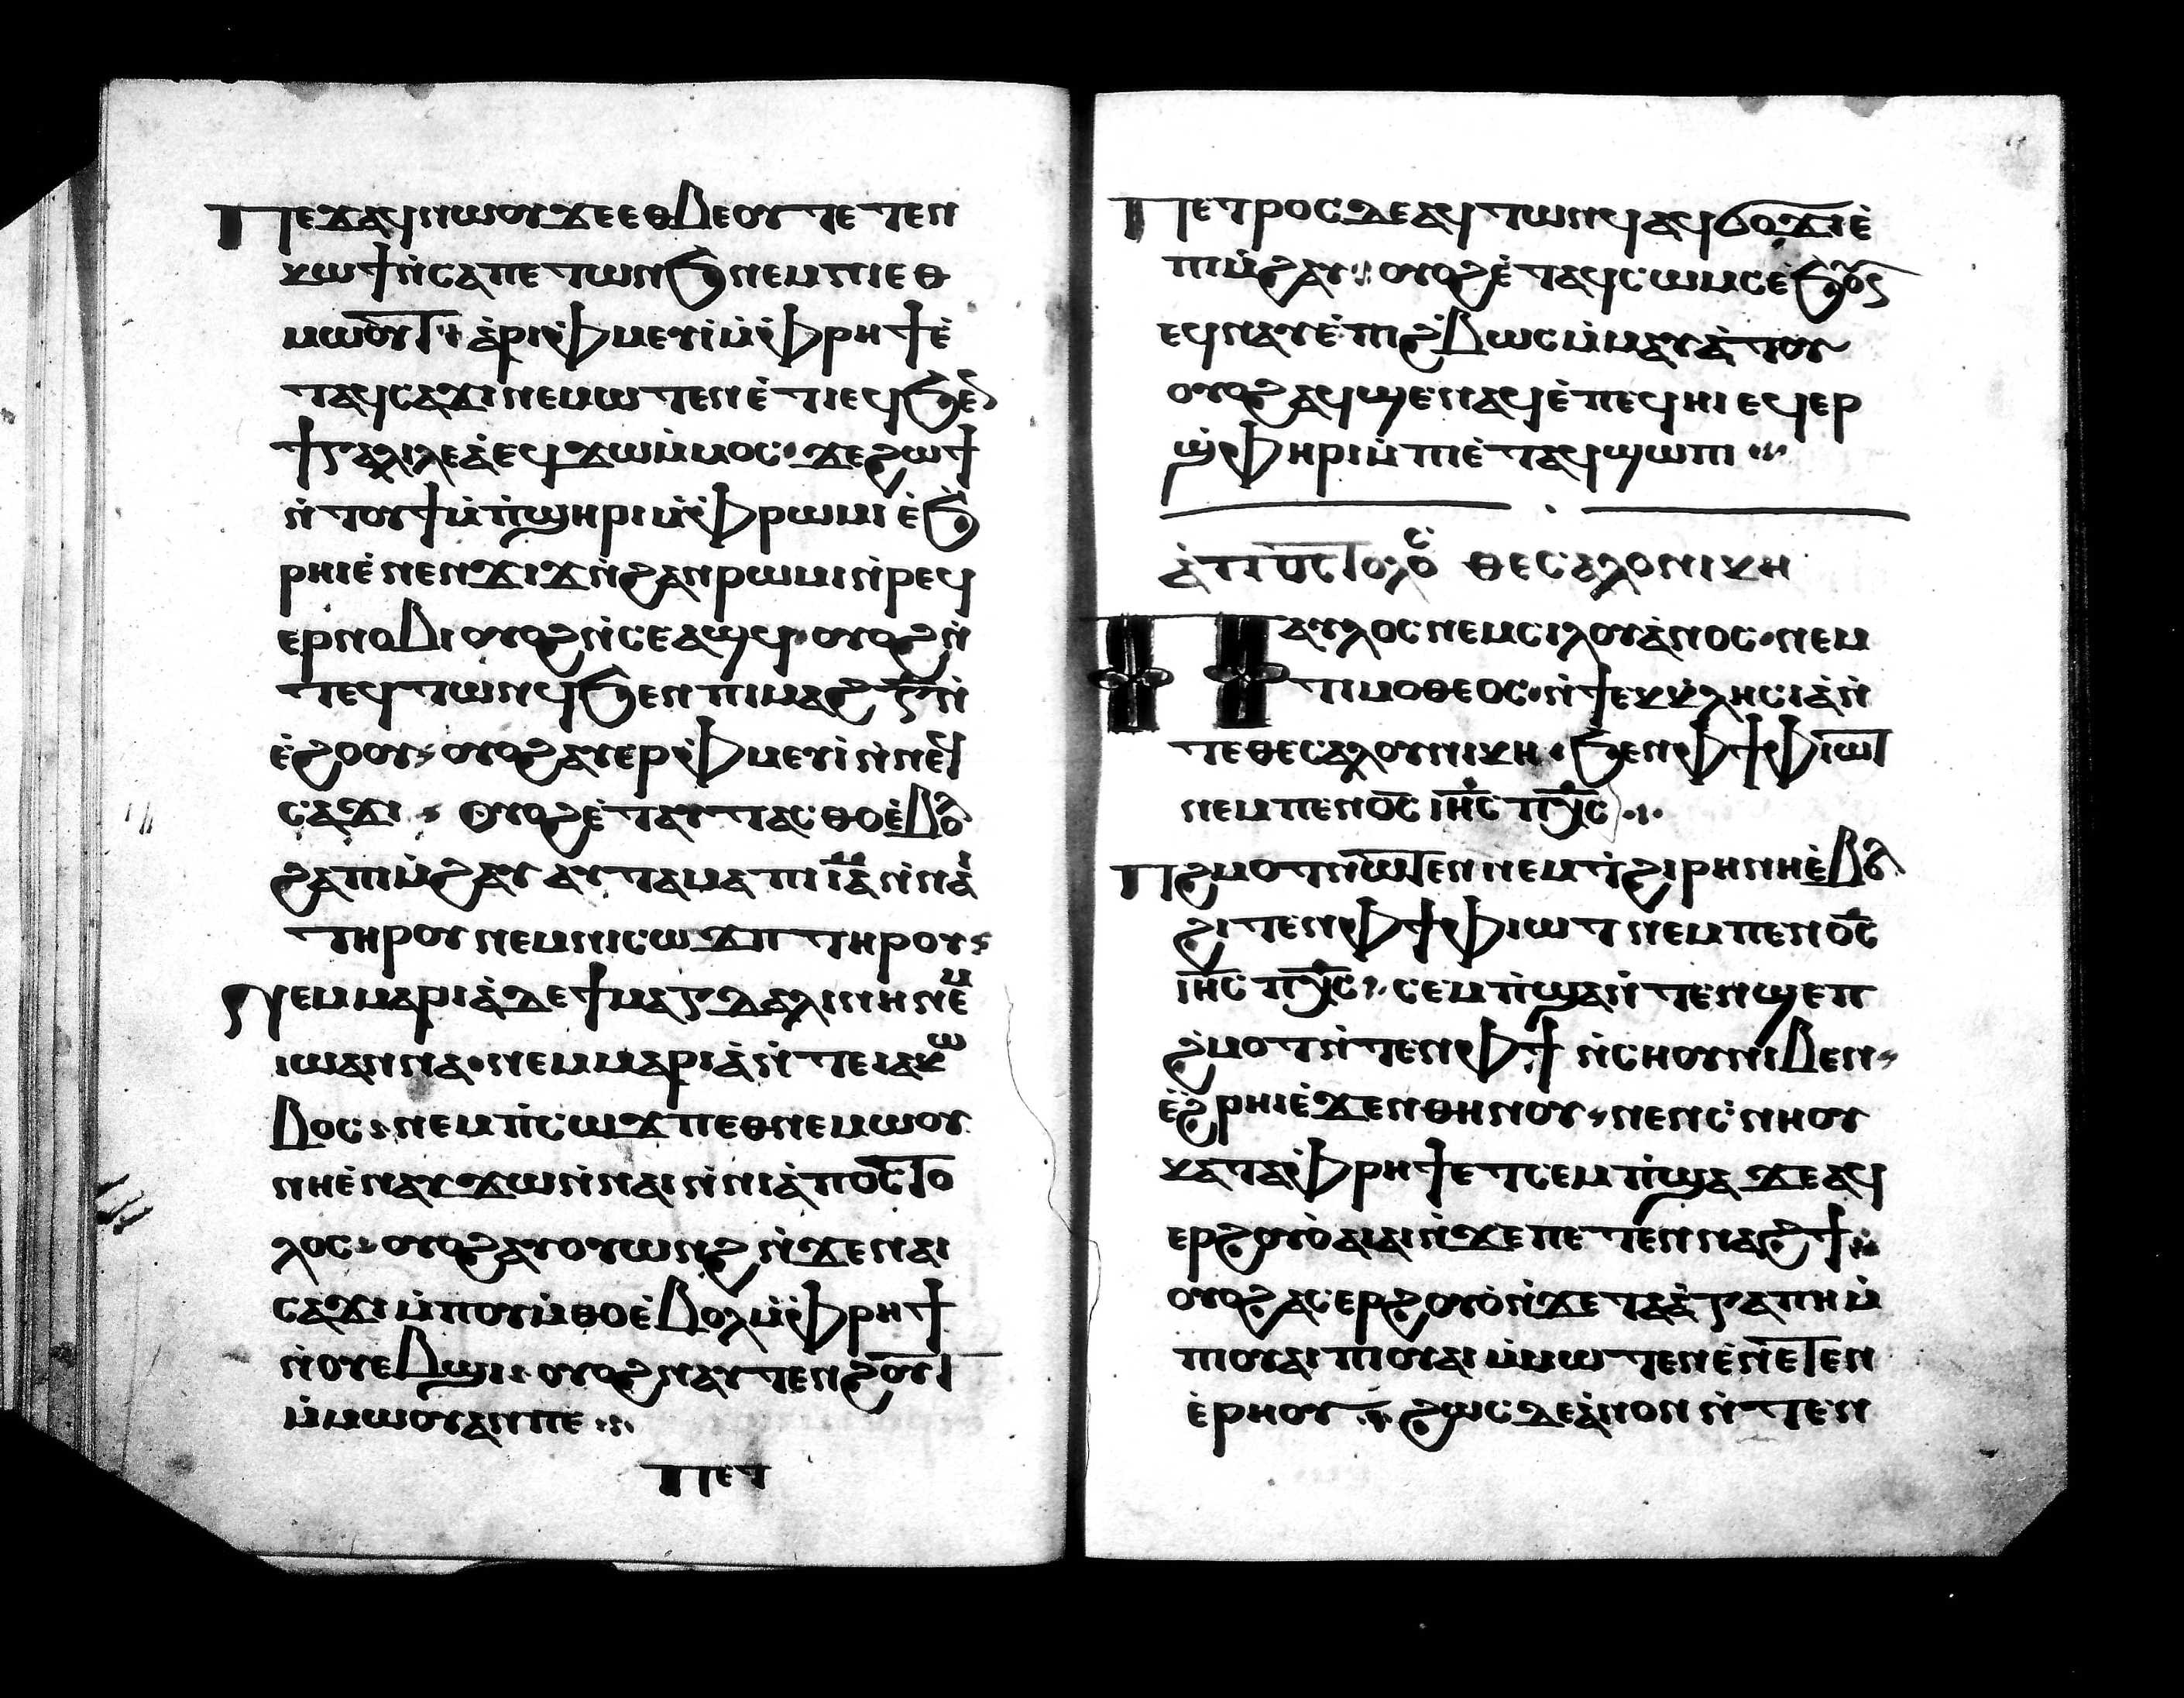 Ⲡⲉϫⲁϥⲛⲱⲟⲩϫⲉⲉⲑⲃⲉⲟⲩⲧⲉⲧⲉⲛ
ⲕⲱϯⲛ̀ⲥⲁⲡⲉⲧⲱⲛϧⲛⲉⲙⲛⲓⲉⲑ
ⲙⲱⲟⲩⲧ ⁘ ⲁ̀ⲣⲓⲫⲙⲉⲩⲓ̀ⲙ̀ⲫⲣⲏϯⲉ̀
ⲧⲁϥⲥⲁϫⲓⲛⲉⲙⲱⲧⲉⲛⲉ̀ⲧⲓⲉϥϧⲉⲛ
ϯⲅⲁⲗⲓⲗⲉⲁ̀ⲉϥϫⲱⲙ̀ⲙⲟⲥ· ϫⲉϩⲱϯ
ⲛ̀ⲧⲟⲩϯⲙ̀ⲡ̀ϣⲏⲣⲓⲙ̀ⲫⲣⲱⲙⲓⲉ̀ϧ
ⲣⲏⲓⲉ̀ⲛⲉⲛϫⲓϫⲛ̀ϩⲁⲛⲣⲱⲙⲓⲛ̀ⲣⲉϥ
ⲉⲣⲛⲟⲃⲓⲟⲩⲟϩⲛ̀ⲥⲉⲁϣϥ· ⲟⲩⲟϩⲛ̀
ⲧⲉϥⲧⲱⲛϥϧⲉⲛⲡⲓⲙⲁϩⲅ̅ⲛ̀
ⲉ̀ϩⲟⲟⲩ· ⲟⲩⲟϩⲁⲩⲉⲣⲫⲙⲉⲩⲓ̀ⲛ̀ⲛⲉϥ
ⲥⲁϫⲓ · Ⲟⲩⲟϩⲉ̀ⲧⲁⲩⲧⲁⲥⲑⲟⲉ̀ⲃⲟⲗ
ϩⲁⲡⲓⲙ̀ϩⲁⲩ ⲁⲩⲧⲁⲙⲁⲡⲓⲓ̅ⲁ̅ⲛ̀ⲛⲁⲓ
ⲧⲏⲣⲟⲩⲛⲉⲙⲛⲓⲥⲱϫⲡⲧⲏⲣⲟⲩ·
Ⲛⲉⲙⲙⲁⲣⲓⲁ̀ⲇⲉϯⲙⲁⲅⲇⲁⲗⲓⲛⲏⲛⲉⲙ
ⲓⲱⲁⲛⲛⲁ· ⲛⲉⲙⲙⲁⲣⲓⲁ̀ⲛ̀ⲧⲉⲓⲁⲕⲱ
ⲃⲟⲥ· ⲛⲉⲙⲡ̀ⲥⲱϫⲡⲉⲑⲛⲉⲙⲱⲟⲩ
ⲛⲏⲉ̀ⲛⲁⲩϫⲱⲛ̀ⲛⲁⲓⲛ̀ⲛⲓⲁ̀ⲡⲟⲥⲧⲟ
ⲗⲟⲥ· ⲟⲩⲟϩⲁⲩⲟⲩⲱⲛϩⲛ̀ϫⲉⲛⲁⲓ
ⲥⲁϫⲓⲙ̀ⲡⲟⲩⲙ̀ⲑⲟⲉ̀ⲃⲟⲗⲙ̀ⲫⲣⲏϯ
ⲛ̀ⲟⲩⲉⲃϣⲓ· ⲟⲩⲟϩⲛⲁⲩⲧⲉⲛϩⲟⲩⲧ
ⲙ̀ⲙⲱⲟⲩⲁⲛⲡⲉ ⁘
ⲡⲉⲧ
Ⲡⲉⲧⲣⲟⲥⲇⲉⲁϥⲧⲱⲛϥⲁϥϭⲟϫⲓⲉ̀
ⲡⲓⲙ̀ϩⲁⲩ ⁘ ⲟⲩⲟϩⲉ̀ⲧⲁϥⲥⲱⲙⲥⲉ̀ϧⲟⲩⲛ
ⲉϥⲛⲁⲩⲉ̀ⲡⲓϩ̀ⲃⲱⲥⲙ̀ⲙⲁⲩⲁ̀ⲧⲟⲩ
ⲟⲩⲟϩⲁϥϣⲉⲛⲁϥⲉ̀ⲡⲉϥⲏⲓⲉϥⲉⲣ
ϣ̀ⲫⲏⲣⲓⲙ̀ⲡⲓⲉ̀ⲧⲁϥϣⲱⲡⲓ ⁘
ⲁ̀ⲡⲟⲥⲧⲟⲗⲟⲥ ⲑⲉⲥⲁⲗⲟⲛⲓⲕⲏ
Ⲡⲁⲩⲗⲟⲥⲛⲉⲙⲥⲓⲗⲟⲩⲁ̀ⲛⲟⲥ· ⲛⲉⲙ
ⲧⲓⲙⲟⲑⲉⲟⲥ· ⲛ̀ϯⲉⲕⲕ̀ⲗⲏⲥⲓⲁ̀ⲛ̀
ⲧⲉⲑⲉⲥⲁⲗⲟⲩⲛⲓⲕⲏ· ϧⲉⲛⲫϯⲫⲓⲱⲧ
ⲛⲉⲙⲡⲉⲛⲟ̅ⲥ̅ ⲓ̅ⲏ̅ⲥ̅ ⲡⲭ̅ⲥ̅ ·ⲓ·
Ⲡϩⲙⲟⲧⲛⲱⲧⲉⲛⲛⲉⲙⲧ̀ϩⲓⲣⲏⲛⲏⲉ̀ⲃⲟⲗ
ϩⲓⲧⲉⲛⲫϯⲫⲓⲱⲧⲛⲉⲙⲡⲉⲛⲟ̅ⲥ̅
ⲓ̅ⲏ̅ⲥ̅ ⲡⲭ̅ⲥ̅ · ⲥⲉⲙⲡ̀ϣⲁⲛ̀ⲧⲉⲛϣⲉⲡ
ϩ̀ⲙⲟⲧⲛ̀ⲧⲉⲛⲫϯ ⲛ̀ⲥⲏⲟⲩⲛⲓⲃⲉⲛ·
ⲉ̀ϩ̀ⲣⲏⲓⲉ̀ϫⲉⲛⲑⲏⲛⲟⲩ· ⲛⲉⲛⲥ̀ⲛⲏⲟⲩ
ⲕⲁⲧⲁⲫⲣⲏϯⲉⲧⲥⲉⲙⲡ̀ϣⲁ ϫⲉⲁϥ
ⲉⲣϩⲟⲩⲟ̀ⲁⲓⲁⲓⲛ̀ϫⲉⲡⲉⲧⲉⲛⲛⲁϩϯ ⁘
ⲟⲩⲟϩⲁⲥⲉⲣϩⲟⲩⲟ̀ⲛ̀ϫⲉⲧⲁⲁ̀ⲅⲁⲡⲏⲙ̀
ⲡⲓⲟⲩⲁⲓⲡⲓⲟⲩⲁⲓⲙ̀ⲙⲱⲧⲉⲛⲉ̀ⲛⲉⲧⲉⲛ
ⲉ̀ⲣⲏⲟⲩ ⁘ ϩⲱⲥⲇⲉⲁ̀ⲛⲟⲛⲛ̀ⲧⲉⲛ